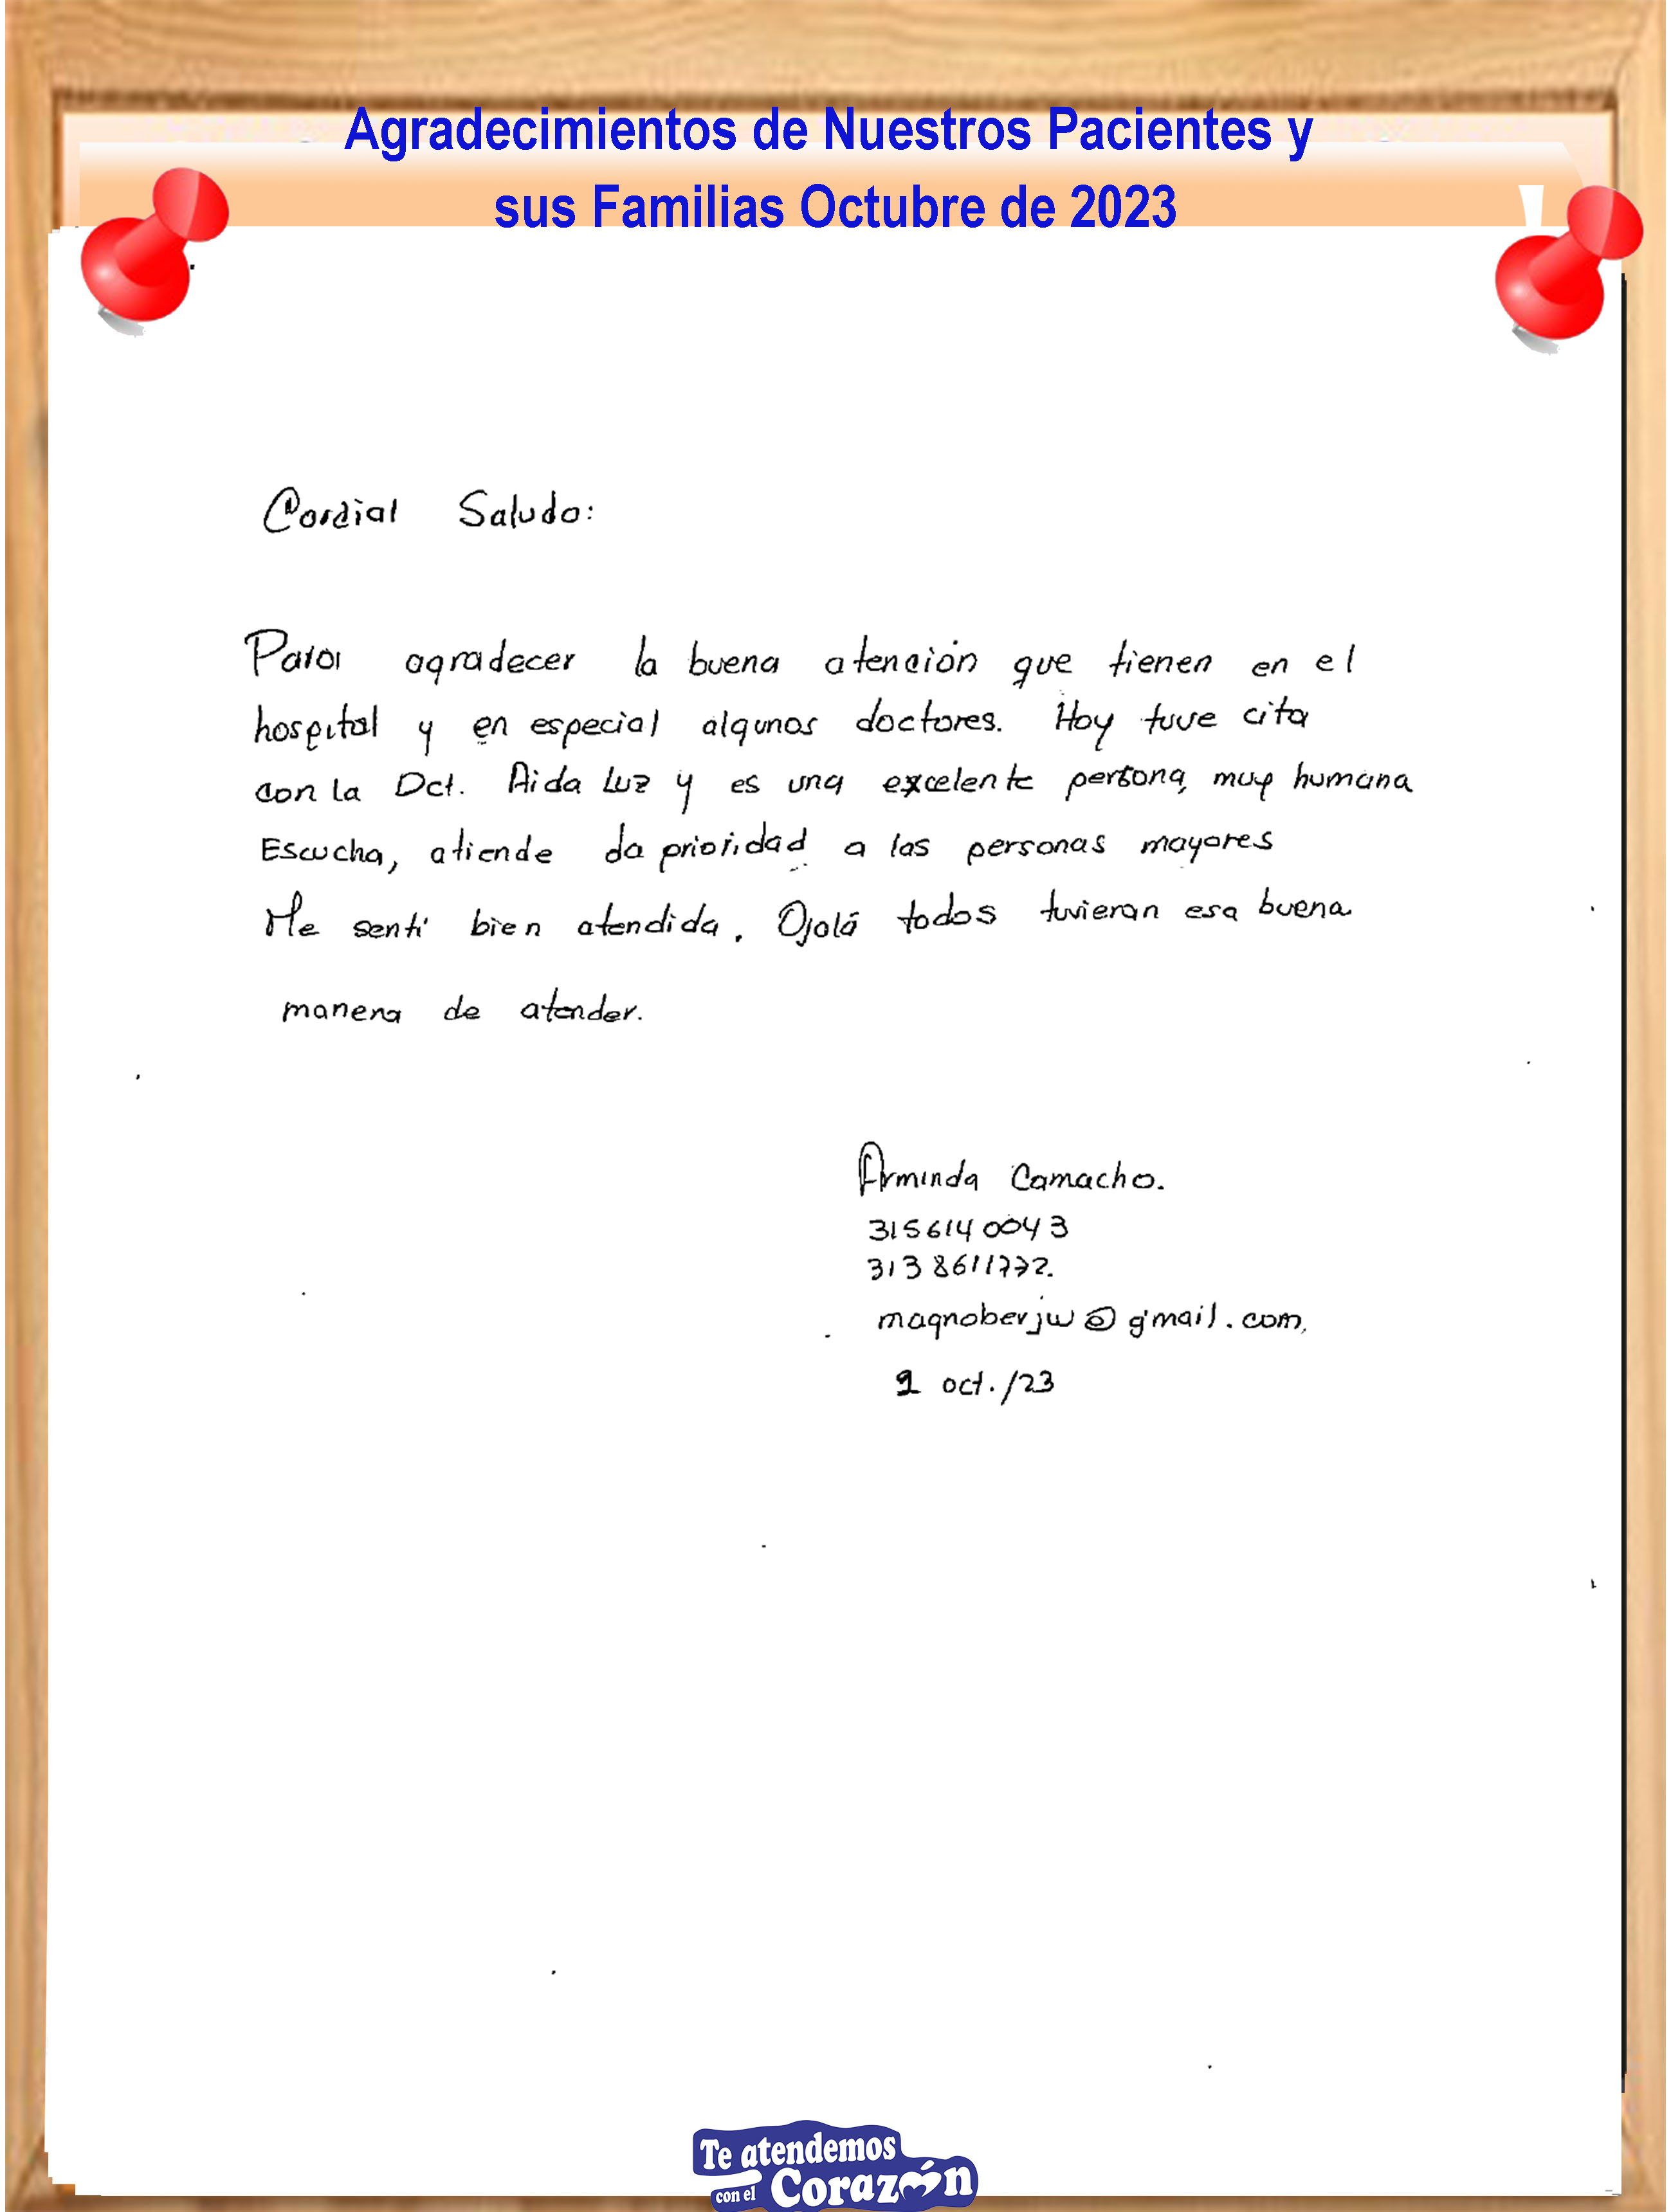 Agradecimientos de Nuestros Pacientes y
sus Familias Octubre de 2023
Cordial Saludo:
Para agradecer la buena atención que tienen en el
hospital y en especial algunos doctores. Hoy tuve cita
con la Dct. Aida Luz y es una excelente persona, muy humana
Escucha, atiende da prioridad a las personas mayores
Me sentí bien atendida. Ojalá todos tuvieran esa buena
manera de atender.
Arminda Camacho.
3156140043
3138611772.
magnoberjw@gmail.com,
2 oct./23
Te atendemos
con el Corazón